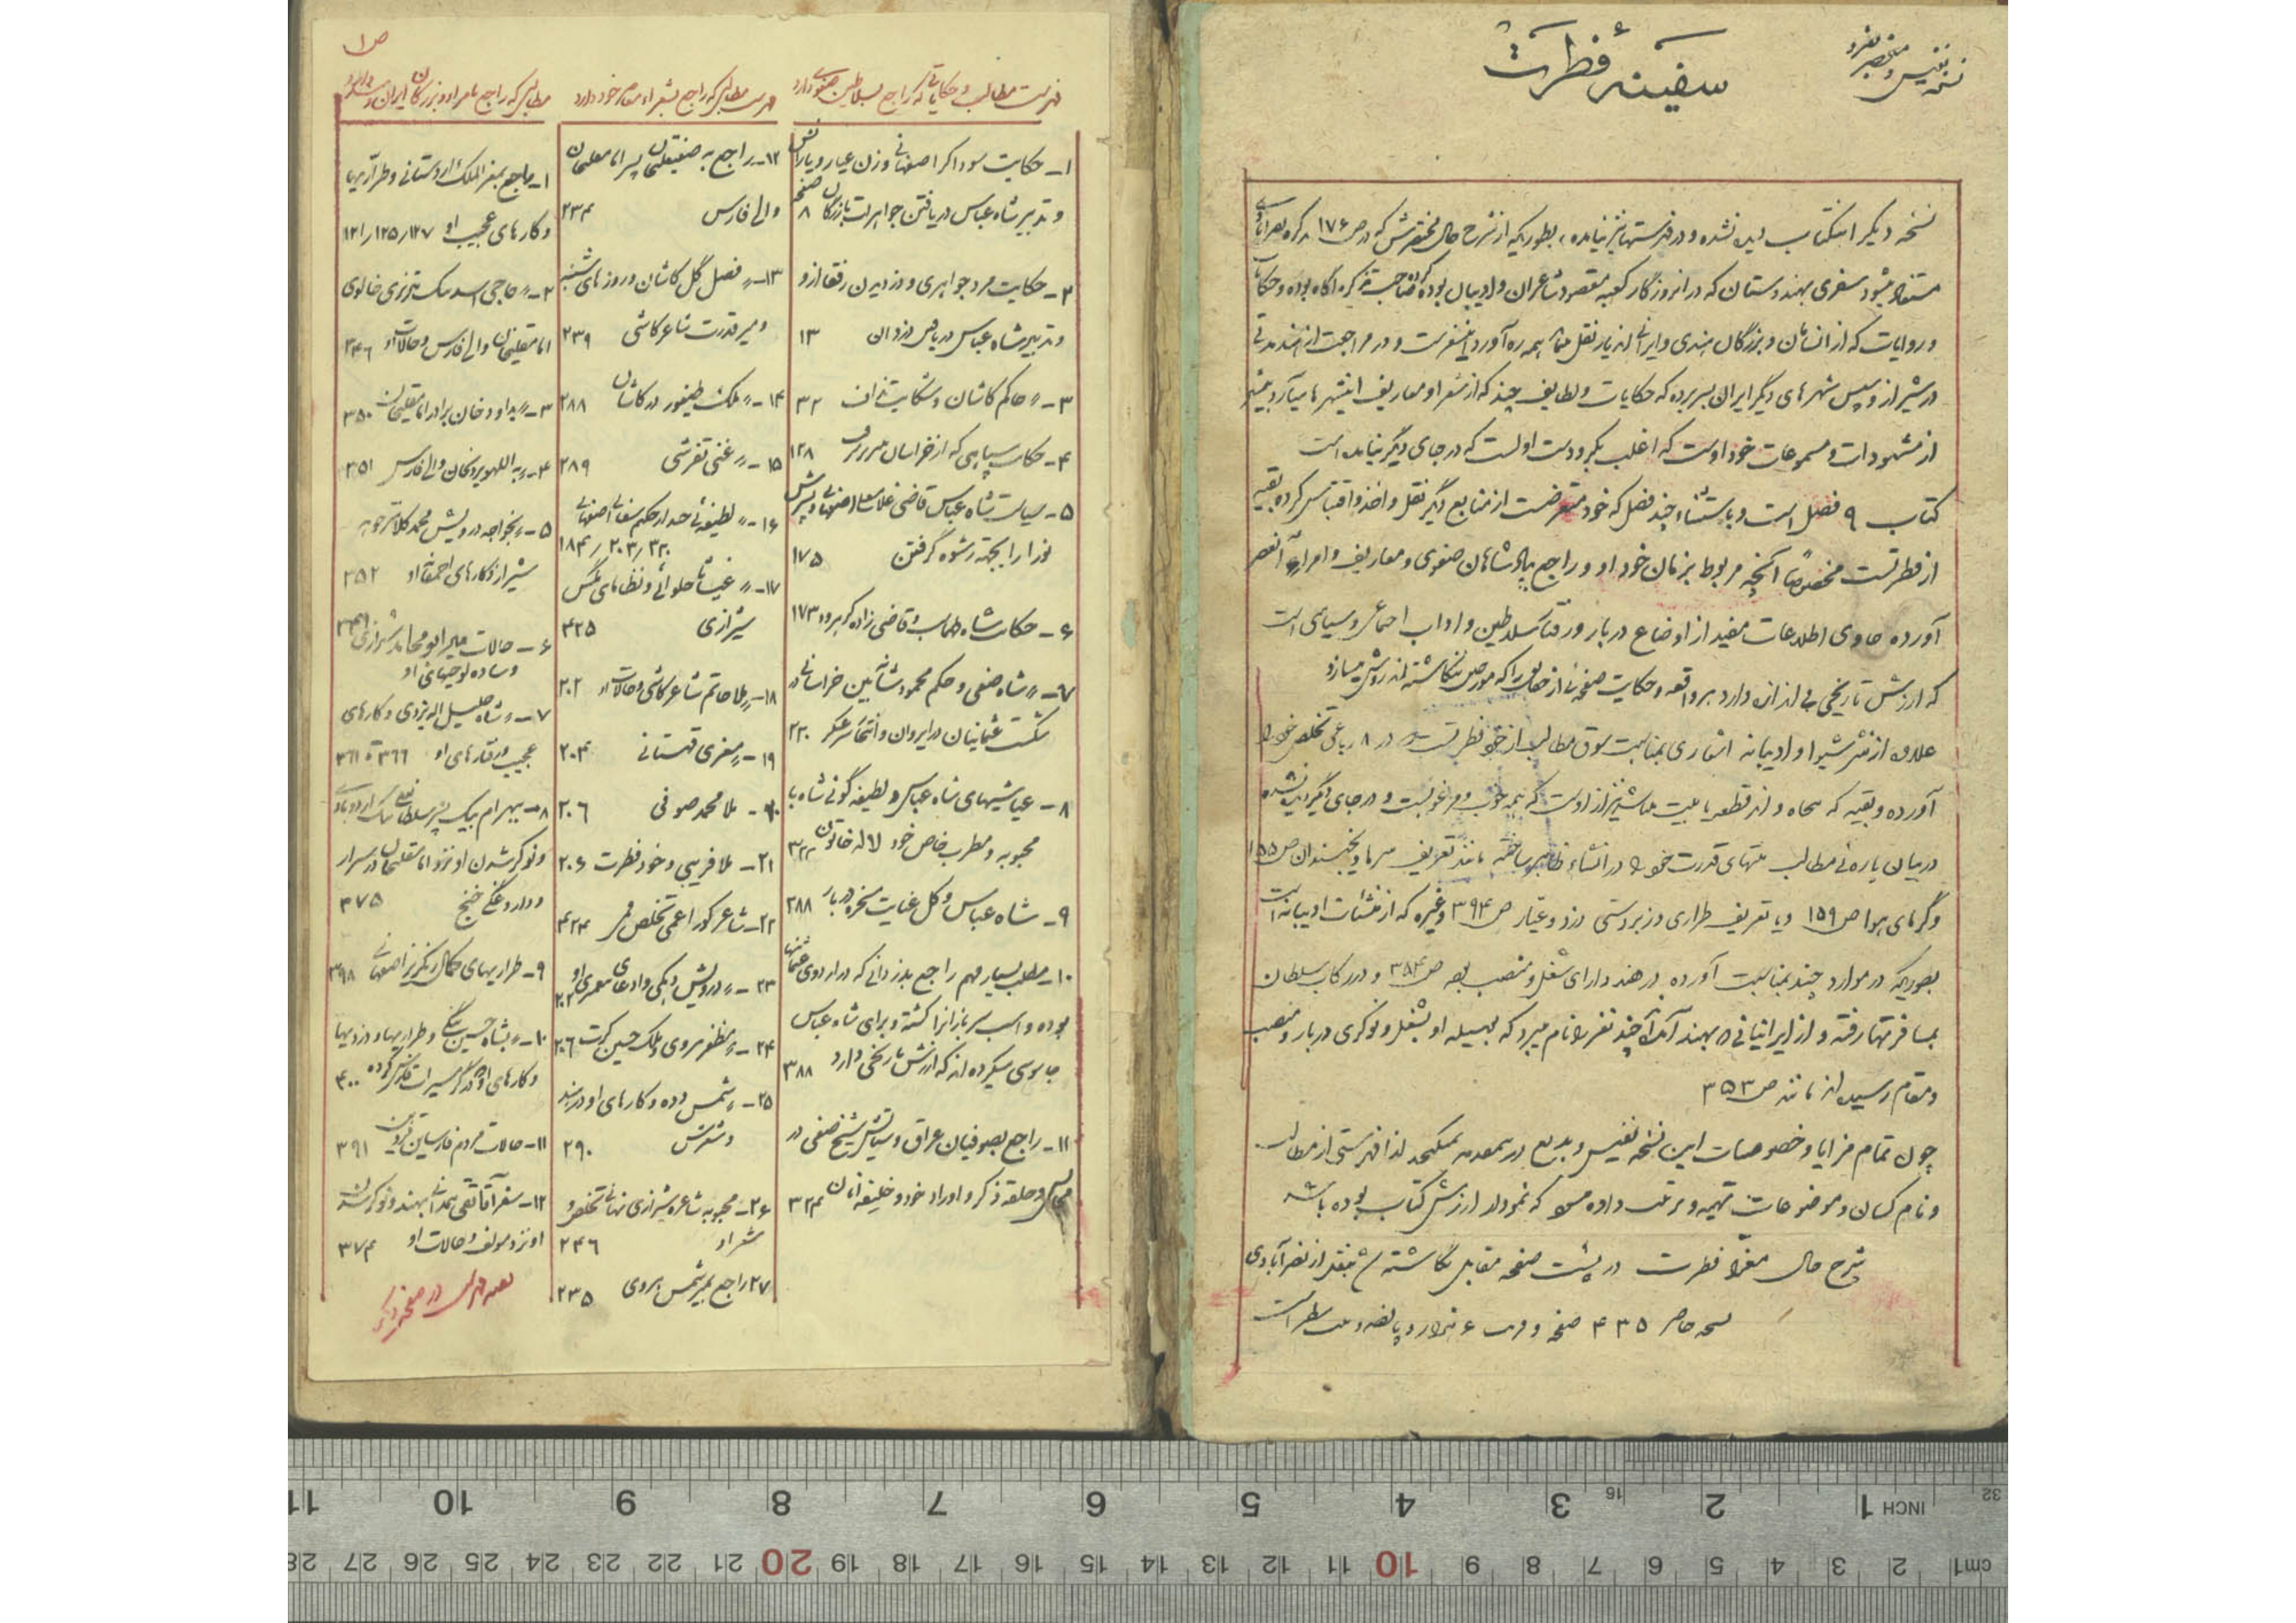 سفینهٔ فطرت
نسخه نفیس و منحصر بفرد
نسخه دیگر اینکتاب دیده نشده و در فهرستها نیز نیامده، بطوریکه از شرح حال مختصرش که در ص ۱۷۶ تذکره نصرآبادی
مستفاد میشود سفری بهندوستان که در آنروزگار کعبه مقصود شاعران و ادیبان بوده کرده صاحب تذکره آگاه بوده و حکایات
و روایات که از انسامان و بزرگان هندی و ایرانی اندیار نقل همه ره آورد اینسفرست و در مراجعت از هند مدتی
در شیراز و سپس شهرهای دیگر ایران بسر برده که حکایات و لطایف چند که از شعرا و معاریف اینشهرها میآرد بیشتر
از مشهودات و مسموعات خود اوست که اغلب بکر و دست اولست که در جای دیگر نیامده است
کتاب ۹ فصل است و باستثناء چند فصل که خود معترضست از منابع دیگر نقل و اخذ و اقتباس کرده بقیه
از فطرتست مخصوصاً آنچه مربوط بزمان خود او و راجع بپادشاهان صفوی و معاریف و امراء آنعصر
آورده حاوی اطلاعات مفید از اوضاع دربار و رفتار سلاطین و اداب اجتماعی و سیاسی است
که ارزش تاریخی بی اندازه دارد هر واقعه و حکایت صفحه‌ئی از حقایق را که مورخین ننگاشته اند روشن میسازد
علاوه از نثر شیوا و ادیبانه اشعاری بمناسبت سوق مطالب از خود فطرتست در ۸ رباعی تخلص خود را
آورده و بقیه که پنجاه و اند قطعه یا بیت میباشد نیز از اوست که همه خوب و مرغوبست و در جای دیگر دیده نشده
در بیان پاره‌ئی مطالب منتهای قدرت خود را در انشاء ظاهر ساخته مانند تعریف سرما و یخبندان ص ۱۵۵
و گرمای هوا ص ۱۵۹ و یا تعریف طراری و زبردستی دزد و عیار ص ۳۹۴ و غیره که از منشئات ادیبانه است
بطوریکه در موارد چند بمناسبت آورده در هند دارای شغل و منصب بوده ص ۳۸۴ و در رکاب سلطان
بمسافرتها رفته و از ایرانیانی که بهند آمده چند نفر را نام میبرد که بوسیله او بشغل و نوکری دربار و منصب
و مقام رسیده اند مانند ص ۳۵۳
چون تمام مزایا و خصوصیات این نسخه نفیس و بدیع در نمیگنجد لذا فهرستی از مطالب
و نام کسان و موضوعات تهیه و ترتیب داده میشود که نمودار ارزش کتاب بوده باشد
شرح حال معزا فطرت در پشت صفحه مقابل نگاشته بنقل از نصرآبادی
نسخه حاضر ۴۳۵ صفحه و هزار و پانصد و بیت سطر است
ص ۱
فهرست مطالب و حکایاتی که راجع بسلاطین صفوی دارد
۱- حکایت سوداگر اصفهانی و زن عیار و یارانش
و تدبیر شاه عباس در یافتن جواهرات بازرگان صفحه ۸
۲- حکایت مرد جواهری و دزدیدن رفقا از او
و تدبیر شاه عباس در یافتن دزدان ۱۳
۳- 〃 حاکم کاشان و شکایت زنان ۳۲
۴- حکایت سپاهی که از خراسان ۱۲۸
۵- سیاست شاه عباس قاضی اصفهان و پسرش
نورا را بجهة رشوه گرفتن ۱۷۵
۶- حکایت شاه طهماسب و قاضی زاده کرهرود ۱۷۳
۷- 〃 شاه صفی و حکم محمود شاه آیین خراسانی در
شکست عثمانیان در ایروان و عسکر ۲۲۰
۸- عیاشیهای شاه عباس و لطیفه گوئی شاه با
محبوبه و مطرب خاص خود لاله خاتون ۳۲۲
۹- شاه عباس و کل عنایت مسخره دربار ۲۸۸
۱۰- مطلب بسیار مهم راجع بدزدانی که در اردوی عثمانیها
بوده و اسب سربازانرا کشته و برای شاه عباس
جاسوسی میکرده اند که ارزش تاریخی دارد ۳۸۸
۱۱- راجع بصوفیان عراق و ستایش شیخ صفی در
مجالس و حلقه ذکر و اوراد خود و خلیفه آنان ۳۲۴
فهرست مطالبی که راجع بشعراء معاصر خود دارد
۱۲- راجع به صفیقلیخان پسر امامقلیخان
والی فارس ۲۳۴
۱۳- 〃 فصل گل کاشان و روزهای شنبه
و میر قدرت شاعر کاشی ۲۳۹
۱۴- 〃 ملک طیفور در کاشان ۲۸۸
۱۵- 〃 غنی تفرشی ۲۸۹
۱۶- 〃 لطیفه‌ئی چند از حکیم شفائی اصفهانی
۱۸۴٫ ۲۰۳٫ ۳۲۰
۱۷- 〃 غیاثا حلوائی و نظامای مگس
شیرازی ۴۲۵
۱۸- 〃 ملا حاتم شاعر کاشی و حالات او ۲۰۲
۱۹- 〃 صغری قهستانی ۲۰۴
۲۰- ملا محمد صوفی ۲۰۶
۲۱- ملا فریبی و خود فطرت ۲۰۶
۲۲- شاعر کور اعمی تخلص قمی ۴۲۴
۲۳- 〃 درویش دکمی و ادعای معمری او ۲۰۲
۲۴- 〃 مظفر هروی و ملک حسین کرت ۲۰۶
۲۵- 〃 شمس دده و کارهای او در هند
و شعرش ۲۹۰
۲۶- محبوبه شاعره شیرازی نهانی تخلص و
شعر او ۲۴۶
۲۷ راجع بمیر شمس هروی ۲۳۵
مطالبی که راجع بامراء و بزرگان ایران
۱- راجع بمعز الملک اردستانی و طراریها
و کارهای عجیب او ۱۲۱٫۱۲۵٫۱۲۷
۲- 〃 حاجی اسد بیک تبریزی خالوی
امامقلیخان والی فارس و حالات او ۳۴۶
۳- 〃 بداودخان برادر امامقلیخان ۳۵۰
۴- 〃 به اللهویردیخان والی فارس ۳۵۱
۵- 〃 بخواجه درویش محمد کلانتر جویبر
شیراز و کارهای احمقانه او ۳۵۲
۶- حالات میر ابو محامد شیرازی
و ساده لوحیهای او
۷- 〃 شاه خلیل اله یزدی و کارهای
عجیب و رفتارهای او ۳۶۶ تا ۳۶۱
۸- بیهرام بیک پسر سلطانعلی بیک اردوبادی
و نوکر شدن او نزد امامقلیخان در سرا
و دارو غگی خنج ۳۷۵
۹- طراریهای کمال رنگریز اصفهانی ۳۹۸
۱۰- 〃 بشاه حسین بنگی و طراریها و دزدیها
و کارهای او ۴۰۰
۱۱- حالات مردم فارسیان قزوین ۳۹۱
۱۲- سفر آقا تقی همدانی بهند و نوکر شدن
او نزد مولف و حالات او ۳۷۴
بقیه فهرست در صفحه دیگر
11 10 9 8 7 6 5 4 3 16 2 1 INCH 32
28 27 26 25 24 23 22 21 20 19 18 17 16 15 14 13 12 11 10 9 8 7 6 5 4 3 2 1 cm